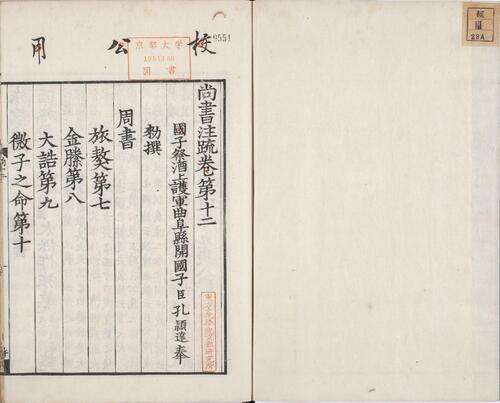 用公校
9551
京都大学
図書
尚書注疏卷第十二
國子祭酒上護軍曲阜縣開國子臣孔穎達奉
勑撰
周書
旅獒第七
金縢第八
大誥第九
微子之命第十